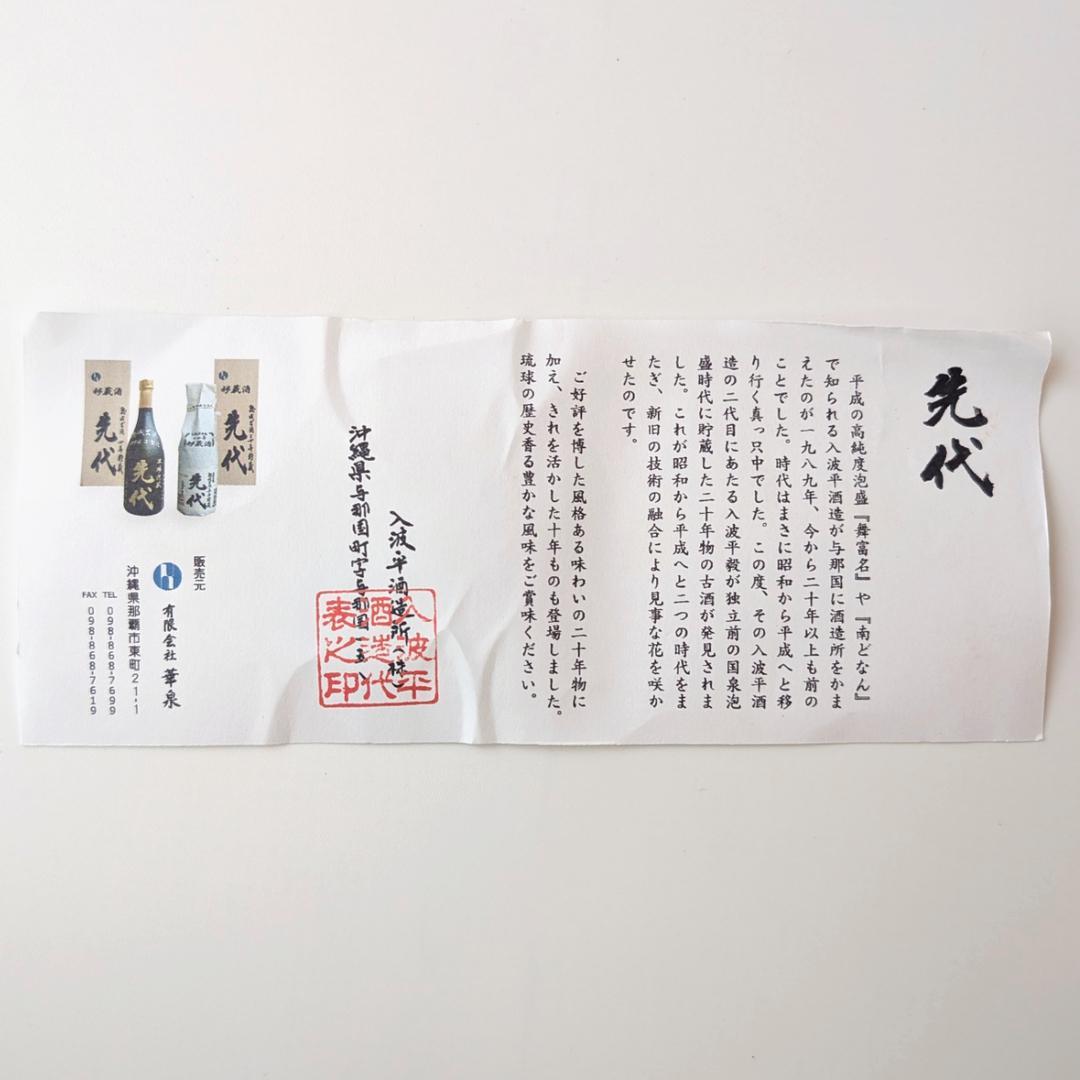 先代
平成の高純度泡盛『舞富名』や『南どなん』
で知られる入波平酒造が与那国に酒造所をかま
えたのが一九八九年、今から二十年以上も前の
ことでした。時代はまさに昭和から平成へと移
り行く真っ只中でした。この度、その入波平酒
造の二代目にあたる入波平毅が独立前の国泉泡
盛時代に貯蔵した二十年物の古酒が発見されま
した。これが昭和から平成へと二つの時代をま
たぎ、新旧の技術の融合により見事な花を咲か
せたのです。
ご好評を博した風格ある味わいの二十年物に
加え、きれを活かした十年ものも登場しました。
琉球の歴史香る豊かな風味をご賞味ください。
入波平酒造所(株)
沖縄県与那国町字与那国一
入波平
酒造代
表之印
秘蔵酒
先代
先代
先代
秘蔵酒
先代
販売元
有限会社 華泉
沖縄県那覇市東町21-1
TEL 098-868-7699
FAX 098-868-7619